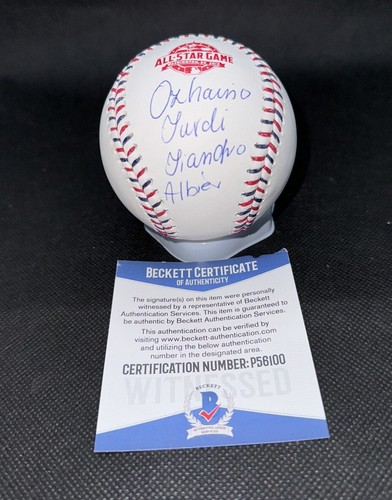 ALL-STAR GAME
WASHINGTON, DC 2018
Ozhaino
Jurdi
Jiandro
Albier
BECKETT CERTIFICATE
OF AUTHENTICITY
The signature(s) on this item were personally
witnessed by a representative of Beckett
Authentication Services. This item is guaranteed to
be authentic by Beckett Authentication Services.
This authentication can be verified by
visiting www.beckett-authentication.com
and utilizing the below authentication
number in the designated area.
CERTIFICATION NUMBER: P56100
WITNESSED
BECKETT
B